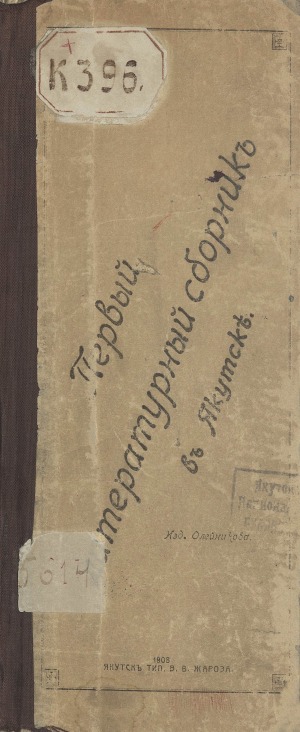 К 396.
Первый
литературный сборникъ
въ Якутскѣ.
Якутск
Изд. Олейникова.
5614
1908
ЯКУТСКЪ ТИП. В. В. ЖАРОВА.